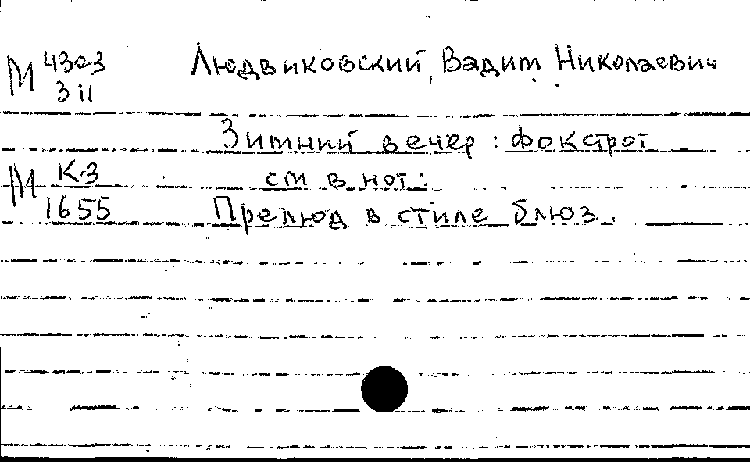 М 4303 Людвиковский, Вадим Николаевич
311
Зимний вечер: фокстрот
М К-3 см в нот:
1655 Прелюд в стиле блюз.